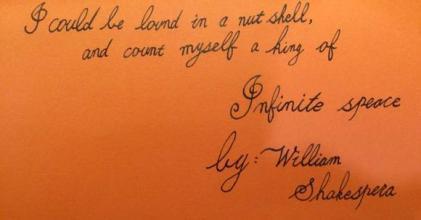 I could be lound in a nut shell,
and count myself a king of
Infinite speace
by: William
Shakespera